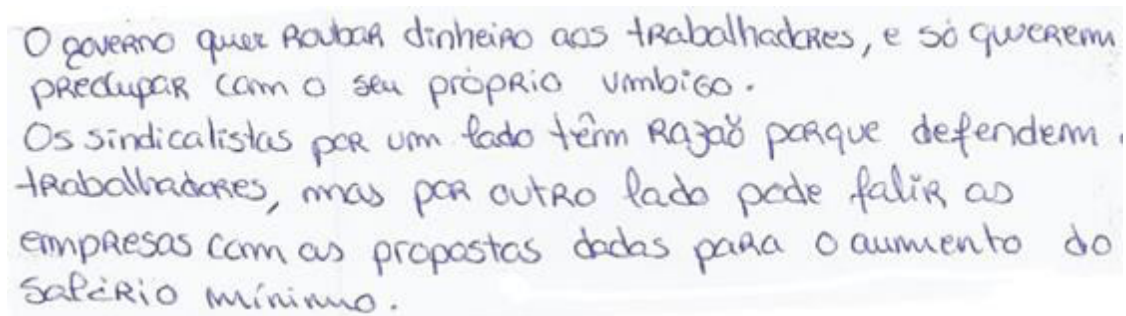 O governo quer roubar dinheiro aos trabalhadores, e só querem
preocupar com o seu próprio umbigo.
Os sindicalistas por um lado têm razaõ porque defendem
trabalhadores, mas por outro lado pode falir as
empresas com as propostas dadas para o aumento do
salário mínimo.